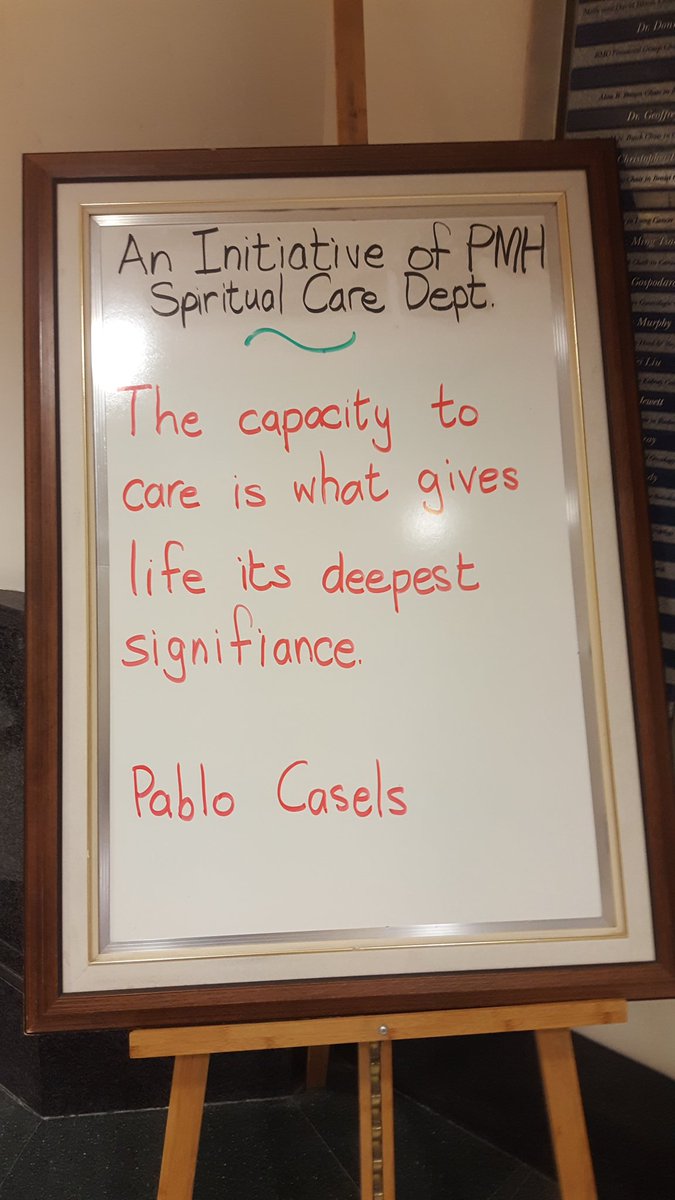 An Initiative of PMH
Spiritual Care Dept.
The capacity to
care is what gives
life its deepest
signifiance.
Pablo Casels
Dr. Don
Dr. Geoffre
Christopher
Ming Tsa
Gospodaro
Murphy
Liu
Jewett